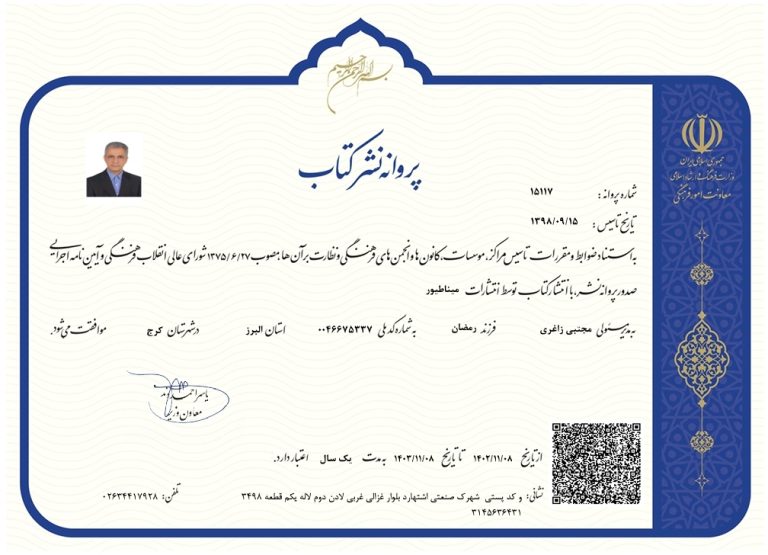 بسم الله الرحمن الرحیم
جمهوری اسلامی ایران
وزارت فرهنگ و ارشاد اسلامی
معاونت امور فرهنگی
پروانه نشر کتاب
شماره پروانه : ۱۵۱۱۷
تاریخ تاسیس : ۱۳۹۸/۰۹/۱۵
به استناد ضوابط و مقررات تاسیس مراکز، موسسات، کانون ها و انجمن های فرهنگی و نظارت بر آن ها ،مصوب ۱۳۷۵/۶/۲۷ شورای عالی انقلاب فرهنگی و آیین نامه اجرایی
صدور پروانه نشر، با انتشار کتاب توسط انتشارات میناطیور
به مدیر مسئولی مجتبی زاغری فرزند رمضان به شماره کد ملی ۰۰۴۶۶۷۵۳۳۷ استان البرز در شهرستان کرج موافقت می شود.
یاسر احمدوند
معاون وزیر
از تاریخ ۱۴۰۲/۱۱/۰۸ تا تاریخ ۱۴۰۳/۱۱/۰۸ به مدت یک سال اعتبار دارد.
نشانی: و کد پستی شهرک صنعتی اشتهارد بلوار غزالی غربی لادن دوم لاله یکم قطعه ۳۴۹۸ تلفن: ۰۲۶۳۴۴۱۷۹۲۸
۳۱۴۵۶۳۶۴۳۱